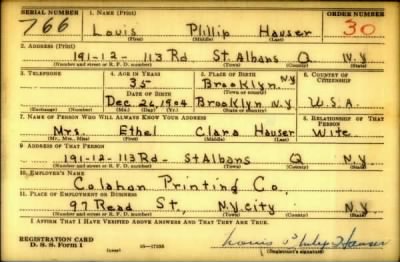 SERIAL NUMBER 1. NAME (Print) ORDER NUMBER
766 Louis Phillip Hauser 30
(First) (Middle) (Last)
2. ADDRESS (Print)
191-12- 113 Rd. St Albans Q N.Y
(Number and street or R. F. D. number) (Town) (County) (State)
3. TELEPHONE 4. AGE IN YEARS 5. PLACE OF BIRTH 6. COUNTRY OF CITIZENSHIP
35 Brooklyn N.Y
DATE OF BIRTH (Town or county)
Dec. 26, 1904 Brooklyn N.Y U.S.A.
(Exchange) (Number) (Mo.) (Day) (Yr.) (State or country)
7. NAME OF PERSON WHO WILL ALWAYS KNOW YOUR ADDRESS 8. RELATIONSHIP OF THAT PERSON
Mrs. Ethel Clara Hauser Wife
(Mr., Mrs., Miss) (First) (Middle) (Last)
9. ADDRESS OF THAT PERSON
191-12- 113 Rd- St Albans Q N.Y
(Number and street or R. F. D. number) (Town) (County) (State)
10. EMPLOYER'S NAME
Printing Co.
11. PLACE OF EMPLOYMENT OR BUSINESS
97 Read St., N.Y. city N.Y
(Number and street or R. F. D. number) (Town) (County) (State)
I AFFIRM THAT I HAVE VERIFIED ABOVE ANSWERS AND THAT THEY ARE TRUE.
REGISTRATION CARD
D. S. S. FORM 1 (over) Louis Phillip Hauser
(Registrant's signature)